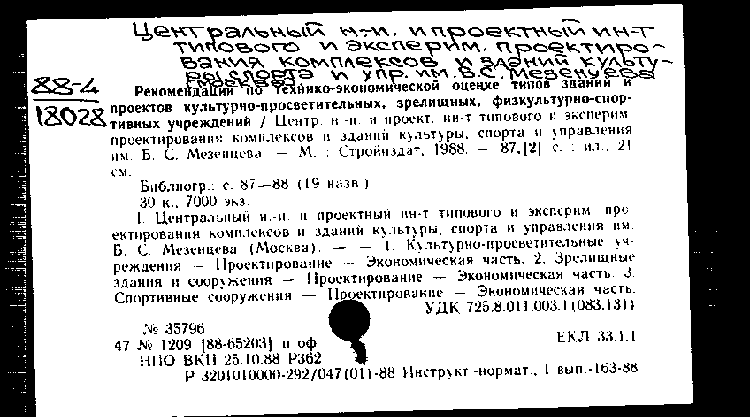 Центральный н.-и. и проектный ин-т
типового и эксперим. проектиро-
вания комплексов и зданий культу-
ры, спорта и упр. им. Б.С. Мезенцева
(Москва)
88-4
18028
Рекомендации по технико-экономической оценке типов зданий и
проектов культурно-просветительных, зрелищных, физкультурно-спор-
тивных учреждений / Центр. н.-и. и проект. ин-т типового и эксперим
проектирования комплексов и зданий культуры, спорта и управления
им. Б. С. Мезенцева — М. : Стройиздат, 1988. — 87,[2] с. : ил.. 21
см.
Библиогр.: с. 87—88 (19 назв.)
30 к., 7000 экз.
I. Центральный н.-и. и проектный ин-т типового и эксперим про-
ектирования комплексов и зданий культуры, спорта и управления им.
Б. С. Мезенцева (Москва). — — 1. Культурно-просветительные уч-
реждения — Проектирование — Экономическая часть. 2. Зрелищные
здания и сооружения — Проектирование — Экономическая часть. 3.
Спортивные сооружения — Проектирование — Экономическая часть.
УДК 725.8.011.003.1(083.131)
№ 35796
47 № 1209 [88-65203] п оф
НПО ВКП 25.10.88 Р362
ЕКЛ 33.1.1
Р 3201010000-292/047(01)-88 Инструкт -нормат., 1 вып.-163-88